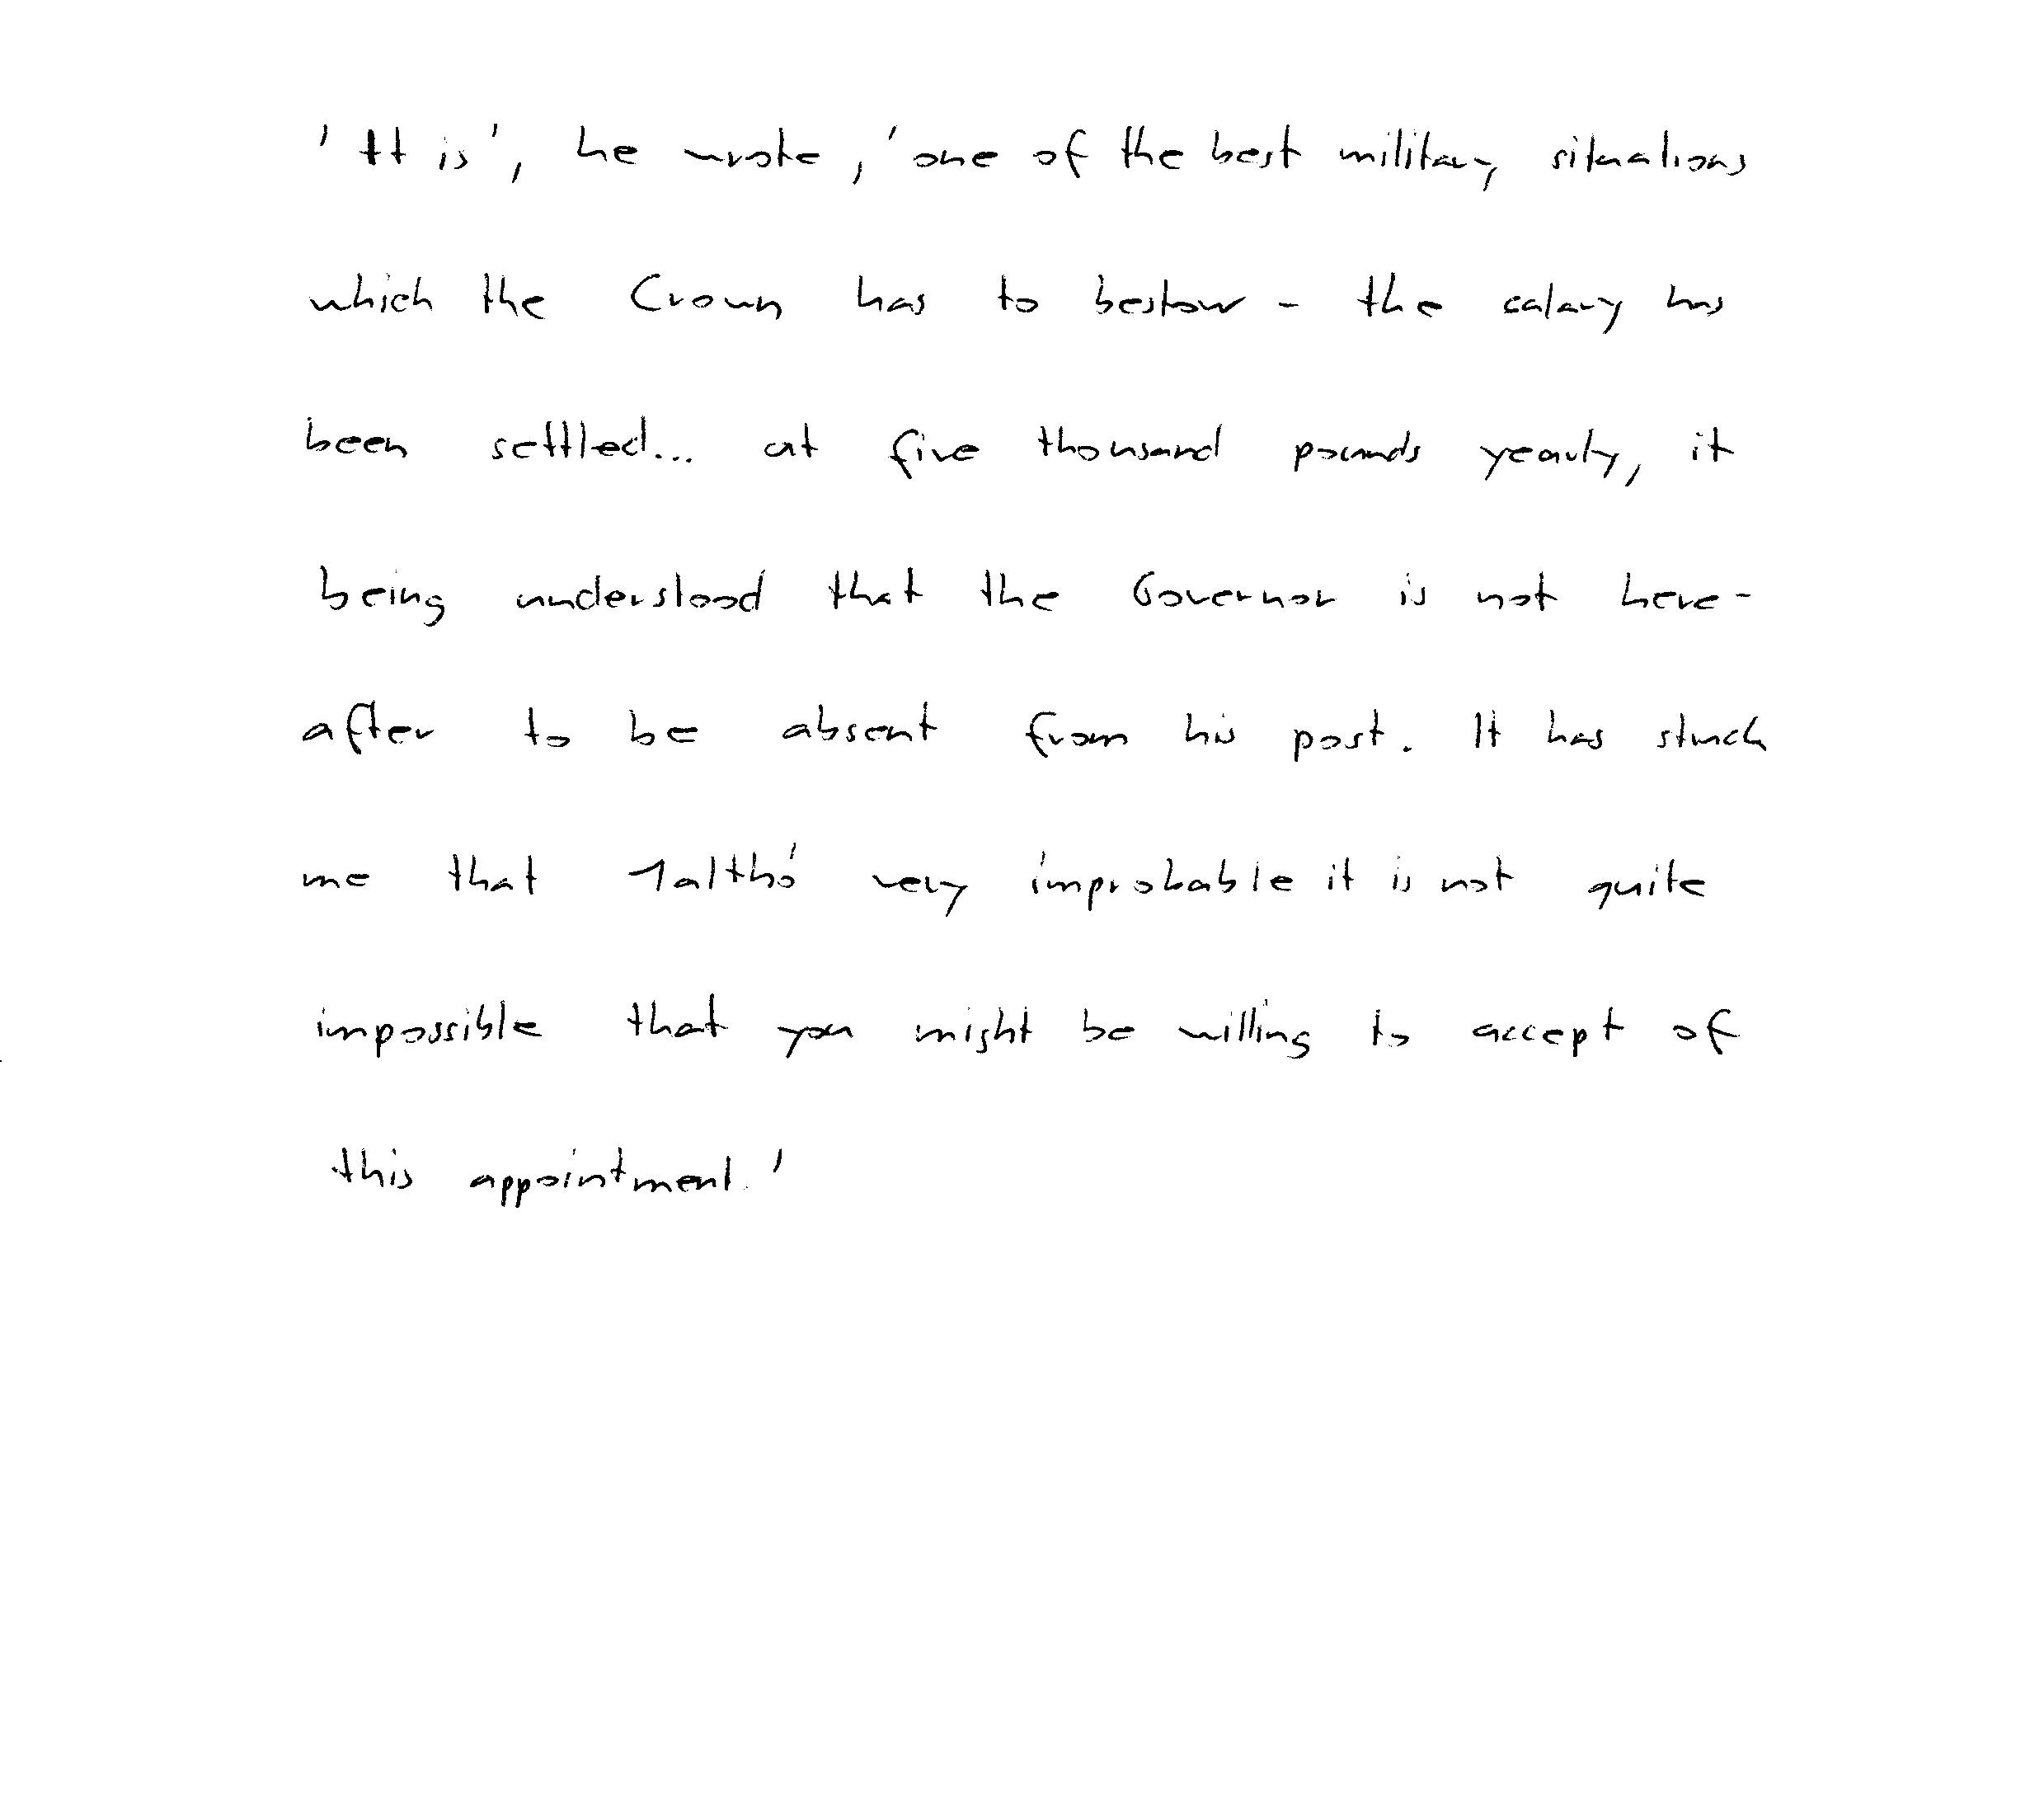 'It is', he wrote, 'one of the best military situations
which the Crown has to bestow - the salary has
been settled... at five thousand pounds yearly, it
being understood that the Governor is not here-
after to be absent from his post. It has struck
me that altho' very improbable it is not quite
impossible that you might be willing to accept of
this appointment.'